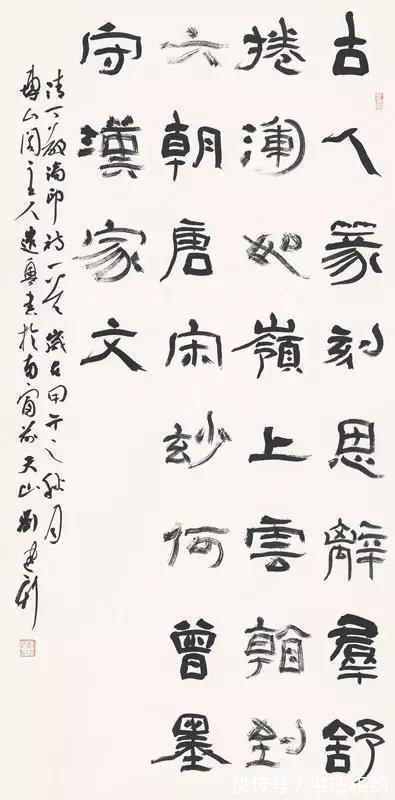 古人篆刻思離羣舒
捲瀾如嶺上雲翰到
六朝唐宋玅何曾墨
守漢家文
清丁敬論印詩一首 歲在甲午之秋月
山閣主人書於南窗 天山劉建新
快传号/书法相约